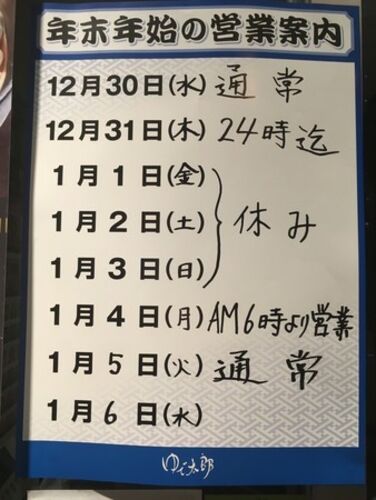 年末年始の営業案内
12月30日(水) 通常
12月31日(木) 24時迄
1月1日(金)
1月2日(土) 休み
1月3日(日)
1月4日(月) AM6時より営業
1月5日(火) 通常
1月6日(水)
ゆで太郎